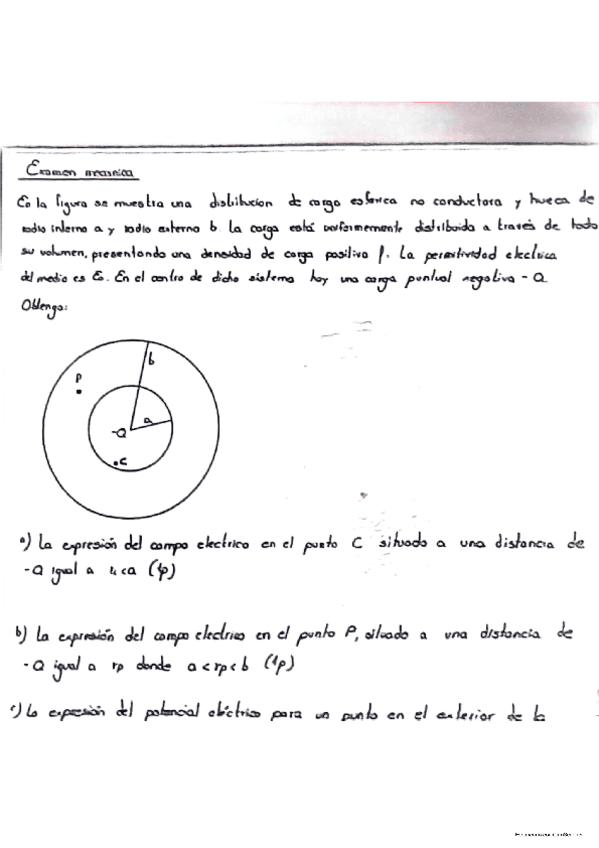 Examen mecanica
En la figura se muestra una distribucion de carga esferica no conductora y hueca de
radio interno a y radio externo b. La carga está uniformemente distribuida a través de todo
su volumen, presentando una densidad de carga positiva ρ. La permitividad electrica
del medio es ε₀. En el centro de dicho sistema hay una carga puntual negativa -Q
Obtenga:
b
P
a
-Q
C
a) La expresión del campo electrico en el punto C situado a una distancia de
-Q igual a <a (1p)
b) La expresión del campo electrico en el punto P, situado a una distancia de
-Q igual a rp donde a<rp<b (1p)
c) La expresión del potencial eléctrico para un punto en el exterior de la